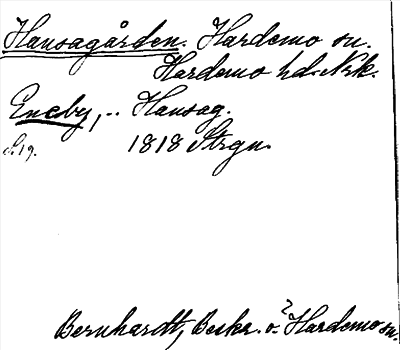 Hansagården. Hardemo sn.
Hardemo hd. Nrk.
Eneby, .. Hansag.
s. 19. 1818 Strgn.
Bernhardt, Beskr. o. Hardemo sn.